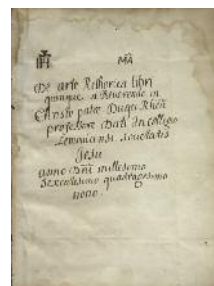 IH MA
De arte Rethorica libri
quinque a Reverendo in
Christo patre
professore Dati in collegio
Lemovicensi societatis
Jesu
anno Dni millesimo
sexcentesimo quadragesimo
nono.